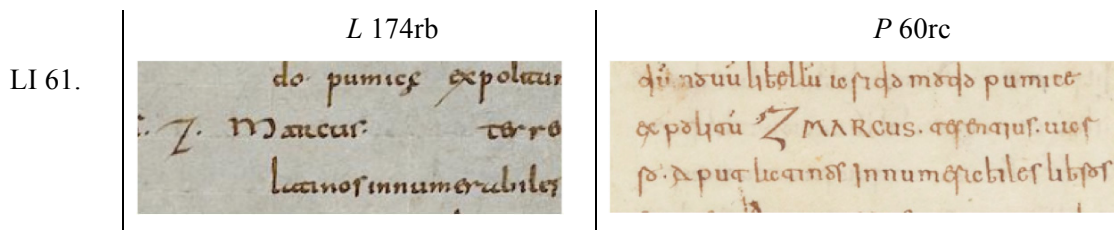 L 174rb
P 60rc
LI 61.
do· pumicę expolitum
Z. Marcus· terre
latinos innumerabiles
libellū pumice
expolitū Z MARCUS· terentius·
Aput latinos Innumerabiles libros